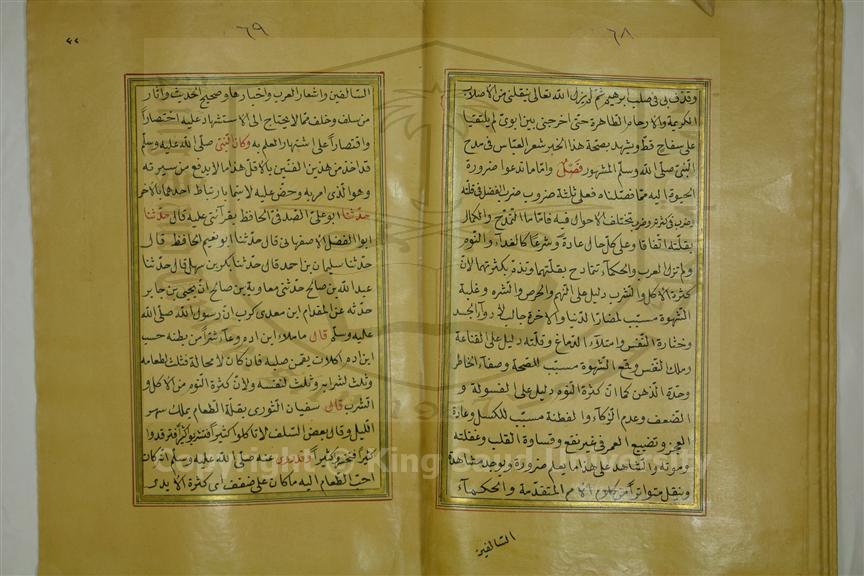 ٦٨
وقذف بى فى صلب ابرهيم ثم لم يزل الله تعالى ينقلنى من الاصلاب
الكريمة والارحام الطاهرة حتى اخرجنى بين ابوىّ لم يلتقيا
على سفاح قط ويشهد بصحة هذا الخبر شعر العباس فى مدح
النبى صلى الله وسلم المشهور فصل واما ما تدعوا ضرورة
الحيوة اليه مما فصلناه فعلى ثلثة ضروب ضرب الفضل فى قلته
وضرب فى كثرته وضرب يختلف الاحوال فيه فاما ما التمدح والكمال
بقلته اتفاقا وعلى كل حال عادة وشرعا كالغداء والنوم
ولم تزل العرب والحكماء تتمادح بقلتهما وتذم بكثرتهما لان
كثرة الاكل والشرب دليل على النهم والحرص والشره وغلبة
الشهوة مسبب لمضار الدنيا والاخرة جالب لادواء الجسد
وخثارة النفس وامتلاء الدماغ وقلته دليل على القناعة
وملك النفس وقمع الشهوة مسبب للصحة وصفاء الخاطر
وحدة الذهن كما ان كثرة النوم دليل على الفسولة و
الضعف وعدم الذكاء والفطنة مسبب للكسل وعادة
العجز وتضييع العمر فى غير نفع وقساوة القلب وغفلته
وموته والشاهد على هذا ما يعلم ضرورة ويوجد مشاهدة
وينقل متواترا من كلام الامم المتقدمة والحكماء
السالفين
٦٩
السالفين واشعار العرب واخبارها وصحيح الحديث واثار
من سلف وخلف مما لا يحتاج الى الاستشهاد عليه اختصارا
واقتصارا على اشتهار العلم به وكان النبى صلى الله عليه وسلم
قد اخذ من هذين الفنين بالاقل هذا ما لا يدفع من سيرته
وهو الذى امر به وحض عليه لا سيما بارتباط احدهما بالاخر
حدثنا ابو على الصدفى الحافظ بقراءتى عليه قال حدثنا
ابو الفضل الاصفهانى قال حدثنا ابو نعيم الحافظ قال
حدثنا سليمان بن احمد قال حدثنا بكر بن سهل قال حدثنا
عبد الله بن صالح حدثنى معاوية بن صالح ان يحيى بن جابر
حدثه عن المقدام ابن معدى كرب ان رسول الله صلى الله
عليه وسلم قال ما ملاء ابن ادم وعاء شرا من بطنه حسب
ابن ادم اكلات يقمن صلبه فان كان لا محالة فثلث لطعامه
وثلث لشرابه وثلث لنفسه ولان كثرة النوم من الاكل و
الشرب قال سفيان الثورى بقلة الطعام يملك سهر
الليل وقال بعض السلف لا تاكلوا كثيرا فتشربوا كثيرا فترقدوا
كثيرا فتخسروا كثيرا وقد روى عنه صلى الله عليه وسلم انه كان
احب الطعام اليه ما كان على ضفف اى كثرة الايدى
Copyright © King Saud University